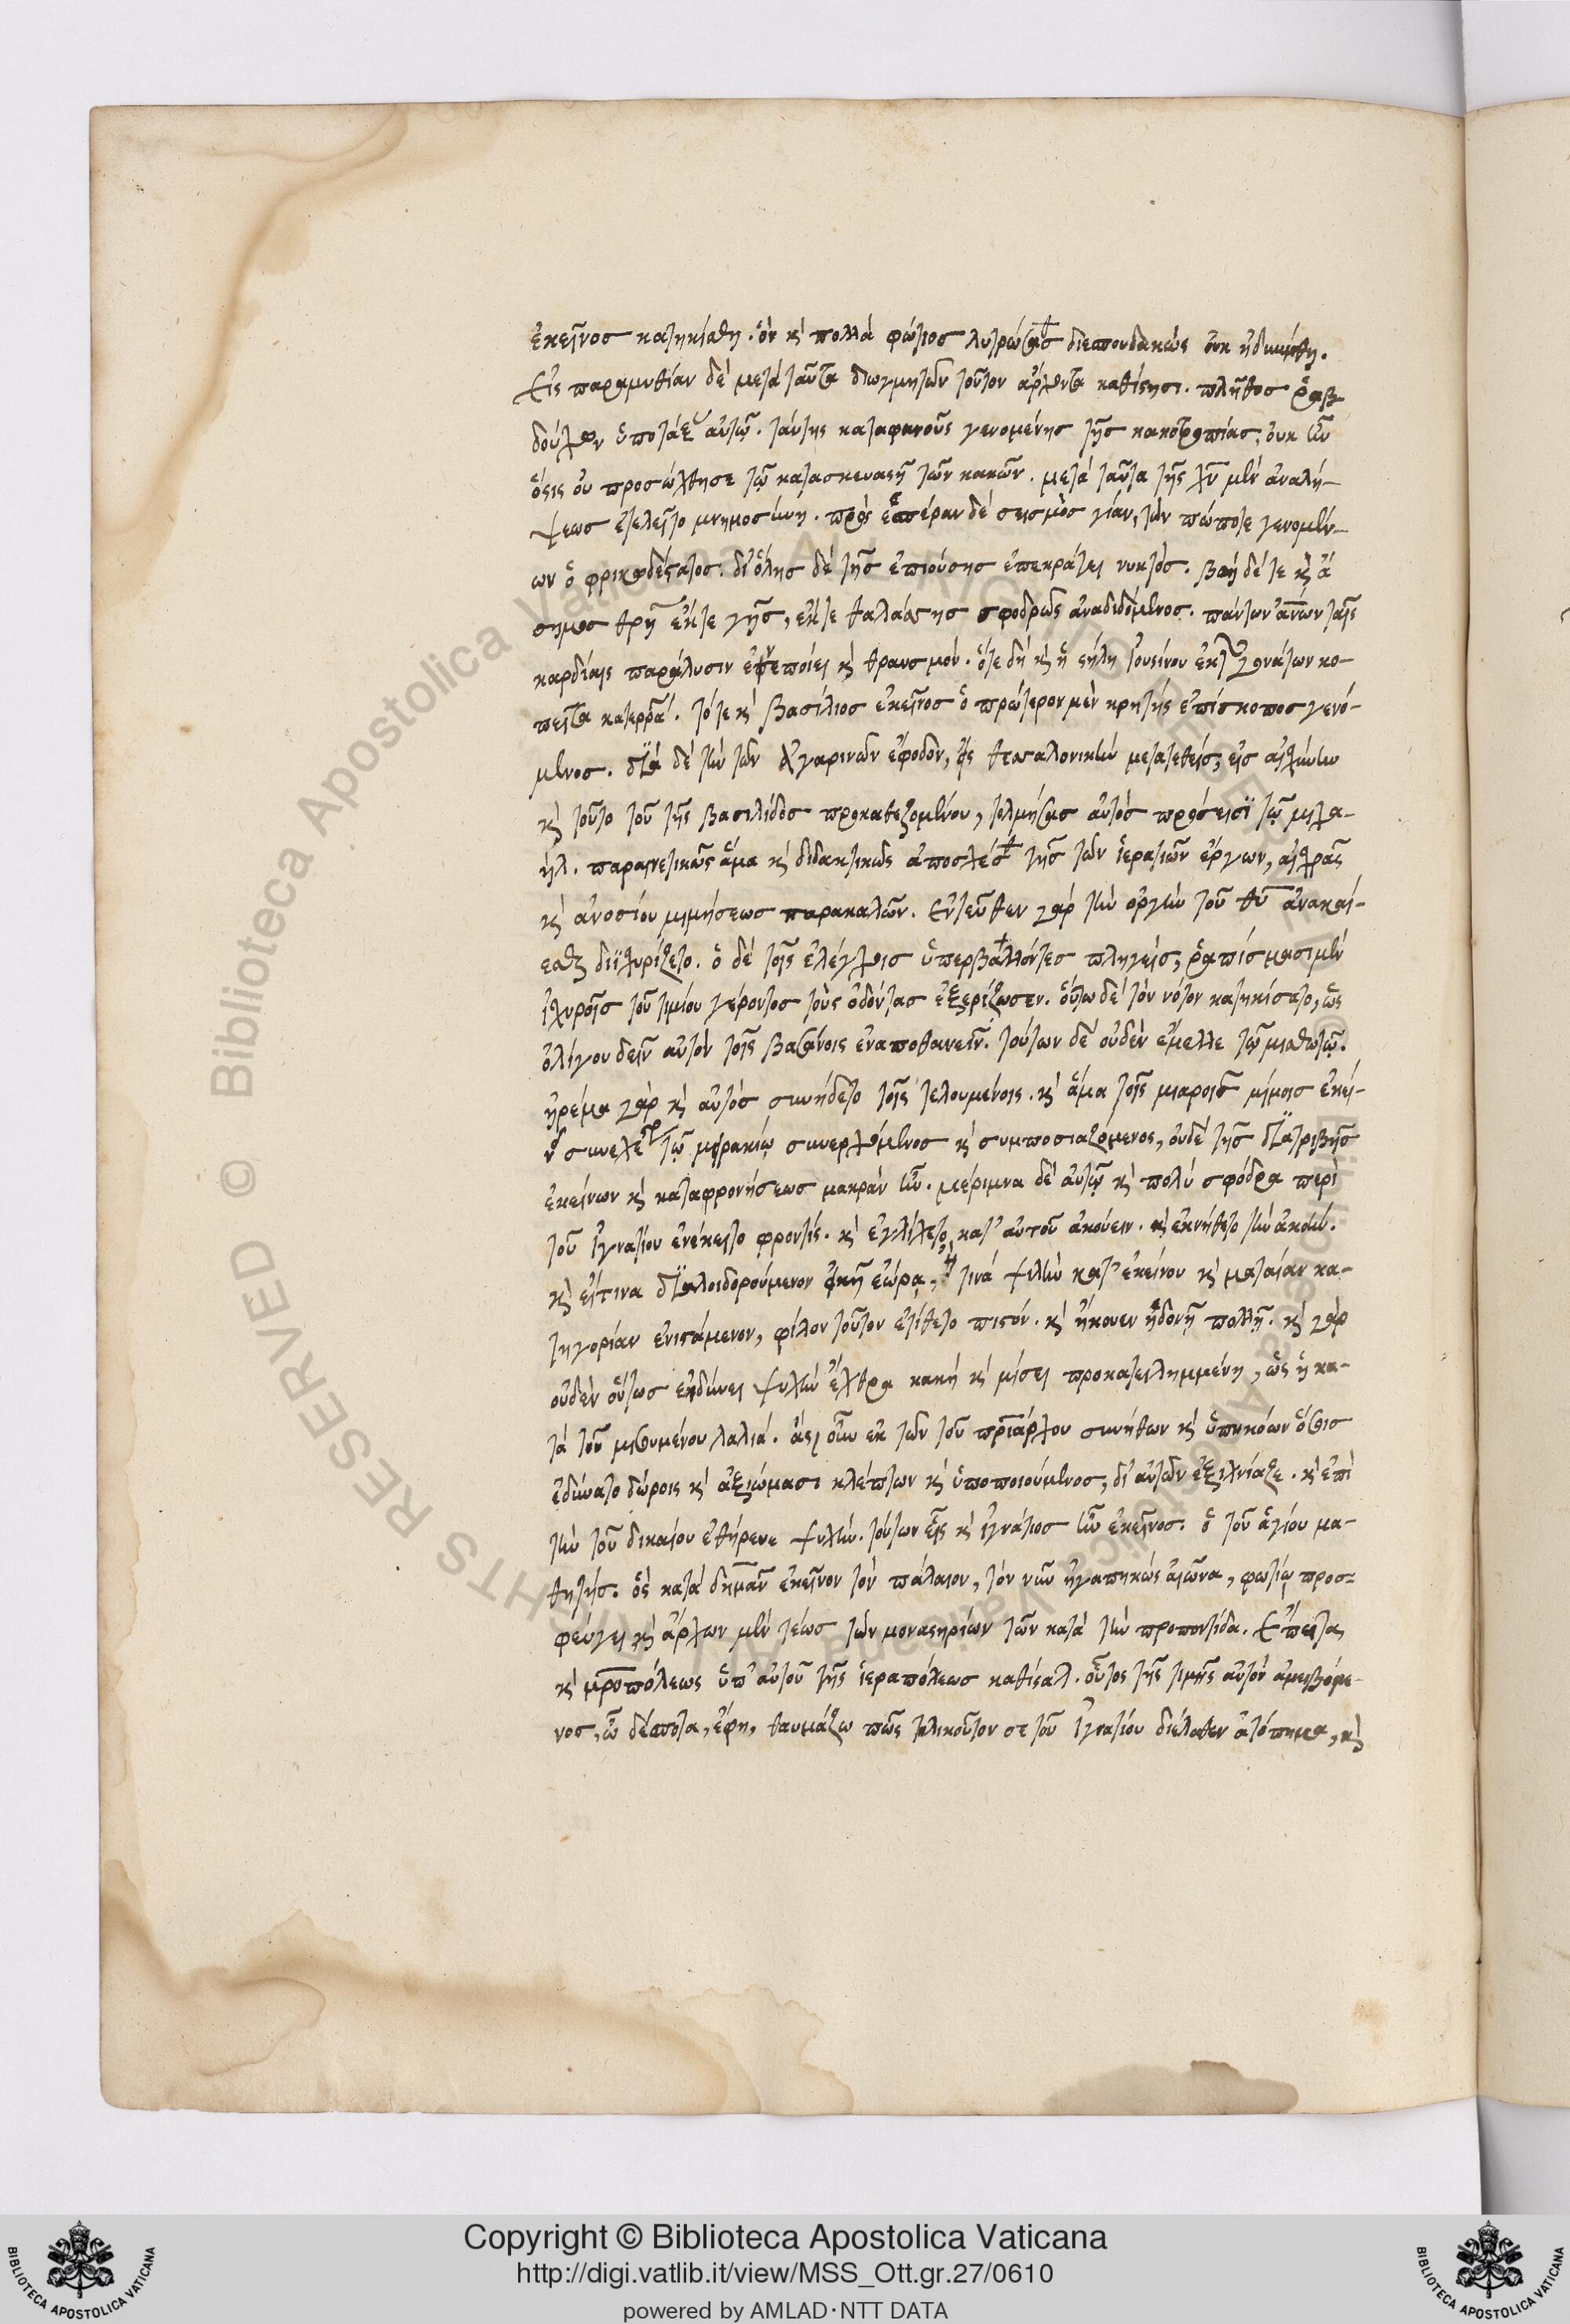 ἐκεῖνος κατηκίσθη. ὃν καὶ πολλὰ φώτιος λυτρώσασθαι διεσπουδακὼς οὐκ ἠδυνήθη.
Εἰς παραμυθίαν δὲ μετὰ ταῦτα διωγμητῶν τοῦτον ἄρχοντα καθίστησι. πλῆθος ῥαβ
δούχων ὑποτάξας αὐτῷ. ταύτης καταφανοῦς γενομένης τῆς κακοτροπίας, οὐκ ἦν
ὅστις οὐ προσώχθησε τῷ κατασκευαστῇ τῶν κακῶν. μετὰ ταῦτα τῆς χυ μὲν ἀναλή-
ψεως ἐτελεῖτο μνημοσύνη. πρὸς ἑσπέραν δὲ σεισμὸς γίνεται, τῶν πώποτε γενομέν-
ων ὁ φρικωδέστατος. δι' ὅλης δὲ τῆς ἐπιούσης ἐπεκράτει νυκτός. βοὴ δέ τε καὶ ἄ
σημος θρῆ ἔκ τε γῆς, ἔκ τε θαλάσσης σφοδρῶς ἀναδιδόμενος. πάντων ἀνων ταῖς
καρδίαις παράλυσιν ἐνεποίει καὶ θραυσμόν. ὅτε δὴ καὶ ἡ στήλη ἰουστίνου ἐκ τῶν γονάτων κο-
πεῖσα κατερρά. τότε καὶ βασίλειος ἐκεῖνος ὁ πρώτερον μὲν κρητῆς ἐπίσκοπος γενό-
μενος. διὰ δὲ τὴν τῶν ἀγαρινῶν ἔφοδον, εἰς θεσσαλονικὴν μετατεθείς, εἰς αἰσχύνην
καὶ τοῦτο τοῦ τῆς βασιλίδος προκαθεζομένου, τολμήσας αὐτὸς πρόσεισι τῷ μιχα-
ήλ. παραινετικῶς ἅμα καὶ διδακτικῶς ἀποσχέσθαι τῆς τῶν ἱερατιῶν ἔργων, αἰσχρᾶς
καὶ ἀνοσίου μιμήσεως παρακαλῶν. Ἐντεῦθεν γὰρ τὴν ὀργὴν τοῦ θυ ἀνακαί-
εσθαι διϊσχυρίζετο. ὁ δὲ τοῖς ἐλέγχοις ὑπερβάλλοντες πληγείς, ῥαπίσμασι μὲν
ἰσχυροῖς τοῦ τιμίου γέροντος τοὺς ὀδόντας ἐξερίζωσεν. οὕτω δὲ τὸν νότον κατηκίσατο, ὡς
ὀλίγου δεῖν αὐτὸν τοῖς βασάνοις ἐναποθανεῖν. τούτων δὲ οὐδὲν ἔμελλε τῷ μισθωτῷ.
ἠρέμα γὰρ καὶ αὐτὸς συνήδετο τοῖς τελουμένοις. καὶ ἅμα τοῖς μιαροῖς μίμοις ἐκεί-
νοις συνεχέστερον τῷ μειρακίῳ συνερχόμενος καὶ συμποσιαζόμενος, οὐδὲ τῆς διατριβῆς
ἐκείνων καὶ καταφρονήσεως μακρὰν ἦν. μέριμνα δὲ αὐτῷ καὶ πολὺ σφόδρα περὶ
τοῦ ἰγνατίου ἐνέκειτο φροντίς. καὶ ἐγλίχετο κατ' αὐτοῦ ἀκούειν. καὶ ἐκνήθετο τὴν ἀκοήν.
καὶ εἴ τινα διαλοιδορούμενον ἐκεῖ ἑώρα, ἤ τινα ψιλὴν κατ' ἐκείνου καὶ ματαίαν κα-
τηγορίαν ἐνιστάμενον, φίλον τοῦτον ἐτίθετο πιστόν. καὶ ἤκουεν ἡδονῇ πολλῇ. καὶ γὰρ
οὐδὲν οὕτως ἐκδύνει ψυχὴν ἔχθρα κακὴ καὶ μίσει προκατειλημμένη, ὡς ἡ κα-
τὰ τοῦ μισουμένου λαλιά. ἀεὶ οὖν ἐκ τῶν τοῦ πριάρχου συνήθων καὶ ὑπηκόων ὅσοις
ἐδύνατο δώροις καὶ ἀξιώμασι κλέπτων καὶ ὑποποιούμενος, δι' αὐτῶν ἐξιχνίαζε. καὶ ἐπὶ
τὴν τοῦ δικαίου ἐθήρευε ψυχήν. τούτων εἷς καὶ ἰγνάτιος ἦν ἐκεῖνος. ὁ τοῦ ἁγίου μα-
θητής. ὃς κατὰ δημᾶν ἐκεῖνον τὸν πάλαιον, τὸν νῦν ἠγαπηκὼς αἰῶνα, φωτίῳ προσ-
φεύγει καὶ ἄρχων μὲν τέως τῶν μοναστηρίων τῶν κατὰ τὴν προποντίδα. Ἔπειτα,
καὶ μροπόλεως ὑπ' αὐτοῦ τῆς ἱεραπόλεως καθίσταται. οὗτος τῆς τιμῆς αὐτὸν ἀμειβόμε-
νος, ὦ δέσποτα, ἔφη, θαυμάζω πῶς τηλικοῦτον σε τοῦ ἰγνατίου διέλαθεν ἀτόπημα, καὶ
Copyright © Biblioteca Apostolica Vaticana
http://digi.vatlib.it/view/MSS_Ott.gr.27/0610
powered by AMLAD·NTT DATA